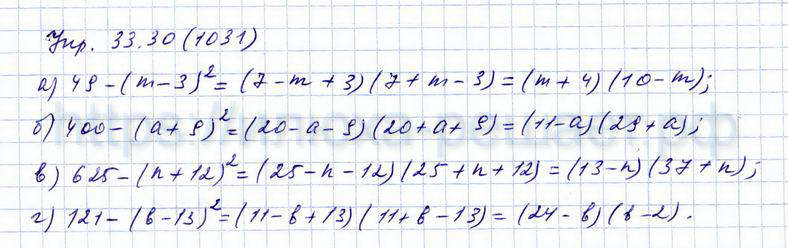 Упр. 33.30 (1031)
а) 49 - (m - 3)² = (7 - m + 3) (7 + m - 3) = (m + 4) (10 - m);
б) 400 - (a + 9)² = (20 - a - 9) (20 + a + 9) = (11 - a) (29 + a);
в) 625 - (n + 12)² = (25 - n - 12) (25 + n + 12) = (13 - n) (37 + n);
г) 121 - (b - 13)² = (11 - b + 13) (11 + b - 13) = (24 - b) (b - 2).